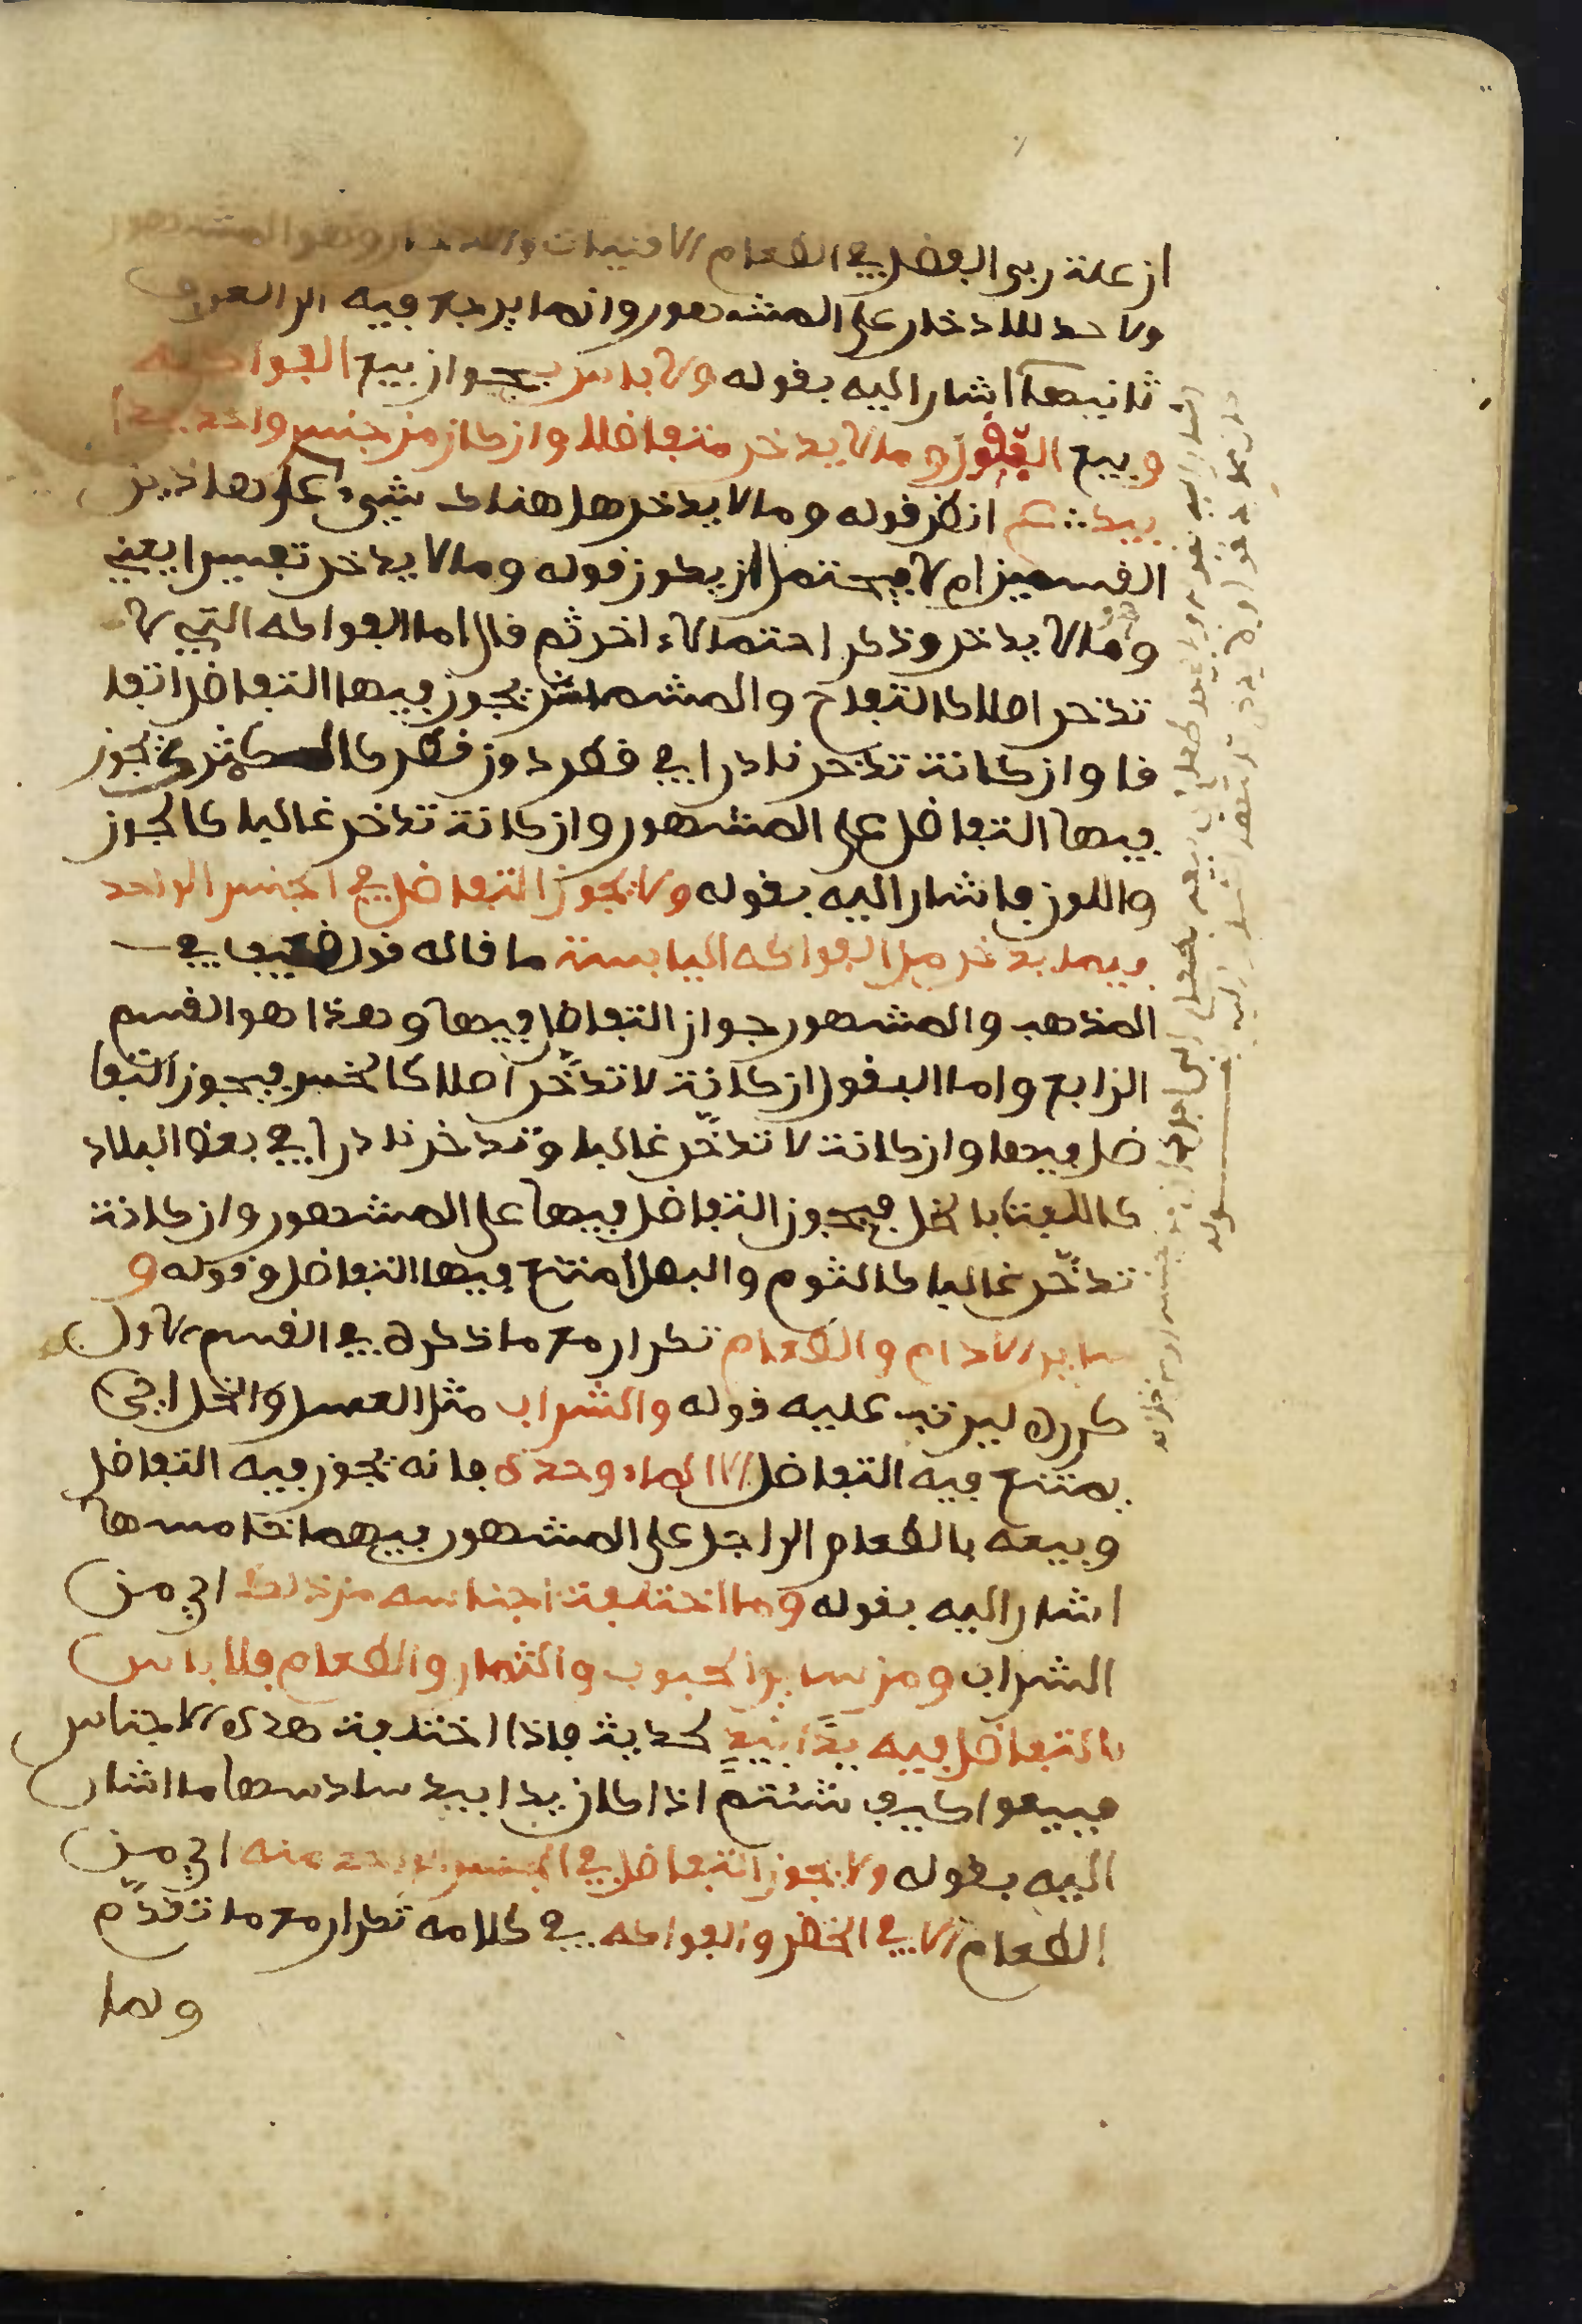 ان علة ربى الفضل في الطعام الاقتيات والادخار وهو المشهور
ولا حد للادخار على المشهور وانما يرجع فيه الى العرف
ثانيها اشار اليه بقوله ولا باس بجواز بيع الفواكه
وبيع البقول وما لا يدخر متفاضلا وان كان من جنس واحد يدا
بيد انظر قوله وما لا يدخر هل هناك شيء على هاذين
القسمين ام لا يحتمل ان يكون قوله وما لا يدخر تفسيرا يعني
وما لا يدخر وذكر احتمالاء اخر ثم قال اما الفواكه التي لا
تدخر اصلا كالتفاح والمشماش يجوز فيها التفاضل اتفا
قا وان كانت تدخر نادرا في قطر دون قطر كالكمثرى يجوز
فيها التفاضل على المشهور وان كانت تدخر غالبا كالجوز
واللوز فاشار اليه بقوله ولا يجوز التفاضل في الجنس الواحد
فيما يدخر من الفواكه اليابسة ما قاله قول ضعيف في
المذهب والمشهور جواز التفاضل فيها وهذا هو القسم
الرابع واما البقول ان كانت لا تدّخر اصلا كالخس فيجوز التفا
ضل فيها وان كانت لا تدّخر غالبا وتدخر نادرا في بعض البلاد
كاللفت بالخل فيجوز التفاضل فيها على المشهور وان كانت
تدّخر غالبا كالثوم والبصل امتنع فيها التفاضل وقوله و
ساير الادام والطعام تكرار مع ما ذكره في القسم الاول
كرره ليرتب عليه قوله والشراب مثل العسل والخل اي
يمتنع فيه التفاضل الا الماء وحده فانه يجوز فيه التفاضل
وبيعه بالطعام الى اجل على المشهور فيهما خامسها
اشار اليه بقوله وما اختلفت اجناسه من ذلك اي من
الشراب ومن ساير الحبوب والثمار والطعام فلا باس
بالتفاضل فيه يدًا بيدٍ لحديث فاذا اختلفت هذه الاجناس
فبيعوا كيف شئتم اذا كان يدا بيد سادسها ما اشار
اليه بقوله ولا يجوز التفاضل في الجنس الواحد منه اي من
الطعام الا في الخضر والفواكه في كلامه تكرار مع ما تقدّم
وما